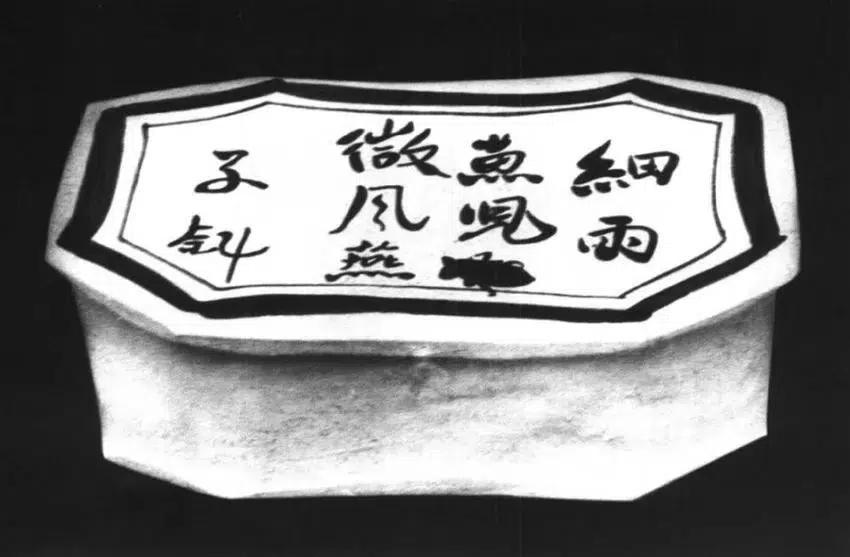 細雨
魚兒
微风燕
子斜